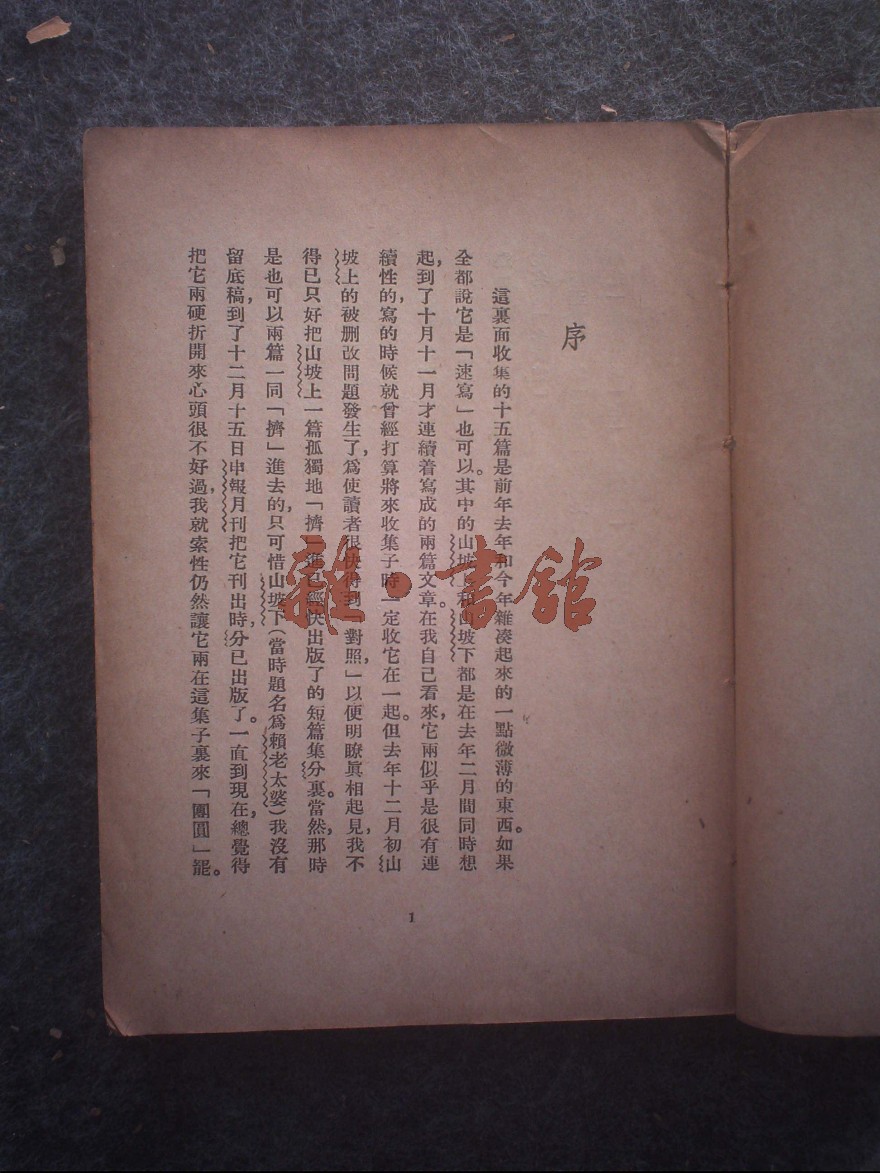 序
這裏面收集的十五篇是前年去年和今年雜湊起來的一點微薄的東西。如果
全都說它是「速寫」也可以。其中的山坡上和山坡下都是在去年二月間同時想
起,到了十月十一月才連續着寫成的兩篇文章。在我自己看來,它兩似乎是很有連
續性的,寫的時候就曾經打算將來收集子時一定收它在一起。但去年十二月初山
坡上的被删改問題發生了,爲使讀者很快得到「對照,」以便明瞭眞相起見,我不
得已只好把山坡上一篇孤獨地「擠」進已經快出版了的短篇集分裏。當然,那時
是也可以兩篇一同「擠」進去的,只可惜山坡下(當時題名爲賴老太婆)我沒有
留底稿,到了十二月十五日申報月刊把它刊出時,分已出版了。一直到現在,總覺得
把它兩硬折開來心頭很不好過,我就索性仍然讓它兩在這集子裏來「團圓」罷。
1
雜·書館